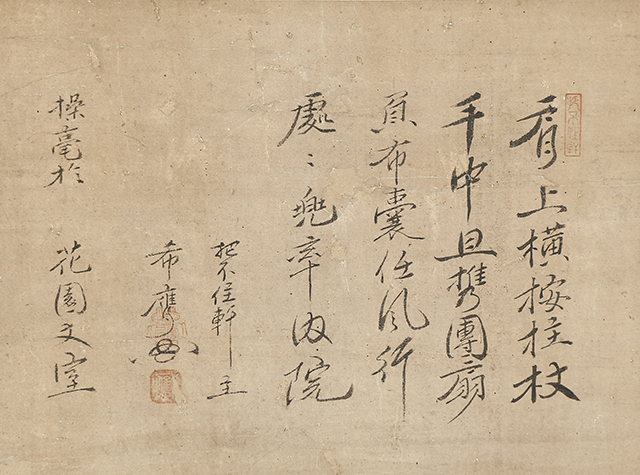 肩上橫按拄杖
手中且携團扇
負布囊任風行
處〻兜率內院
把不住軒主
希膺
操毫於花園文室